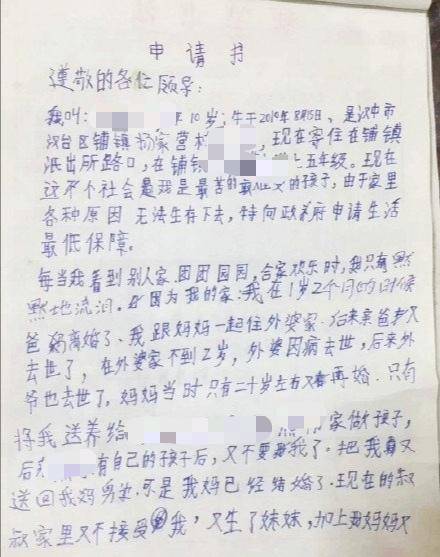 申请书
遵敬的各位领导:
我叫: 年10岁; 生于2010年8月15日、是汉中市
汉台区铺镇杨家营村 , 现在寄住在铺镇
派出所路口, 在铺镇 上五年级。现在
这个社会是我是最苦的 的孩子, 由于家里
各种原因 无法生存下去, 特向政府申请生活
最低保障。
每当我看到别人家团团园园, 合家欢乐时, 我只有默
默地流泪。因为我的家: 我在1岁2个月的时候
爸妈离婚了、我跟妈妈一起住外婆家、后来亲爸又
去世了, 在外婆家不到2岁, 外婆因病去世, 后来外
爷也去世了, 妈妈当时只有二十岁左右又 再婚. 只有
将我送养给 家做孩子,
后 有自己的孩子后, 又不要我了. 把我又
送回我妈身边. 可是我妈已经结婚了. 现在的叔
叔家里又不接受我, 又生了妹妹, 加上我妈妈又